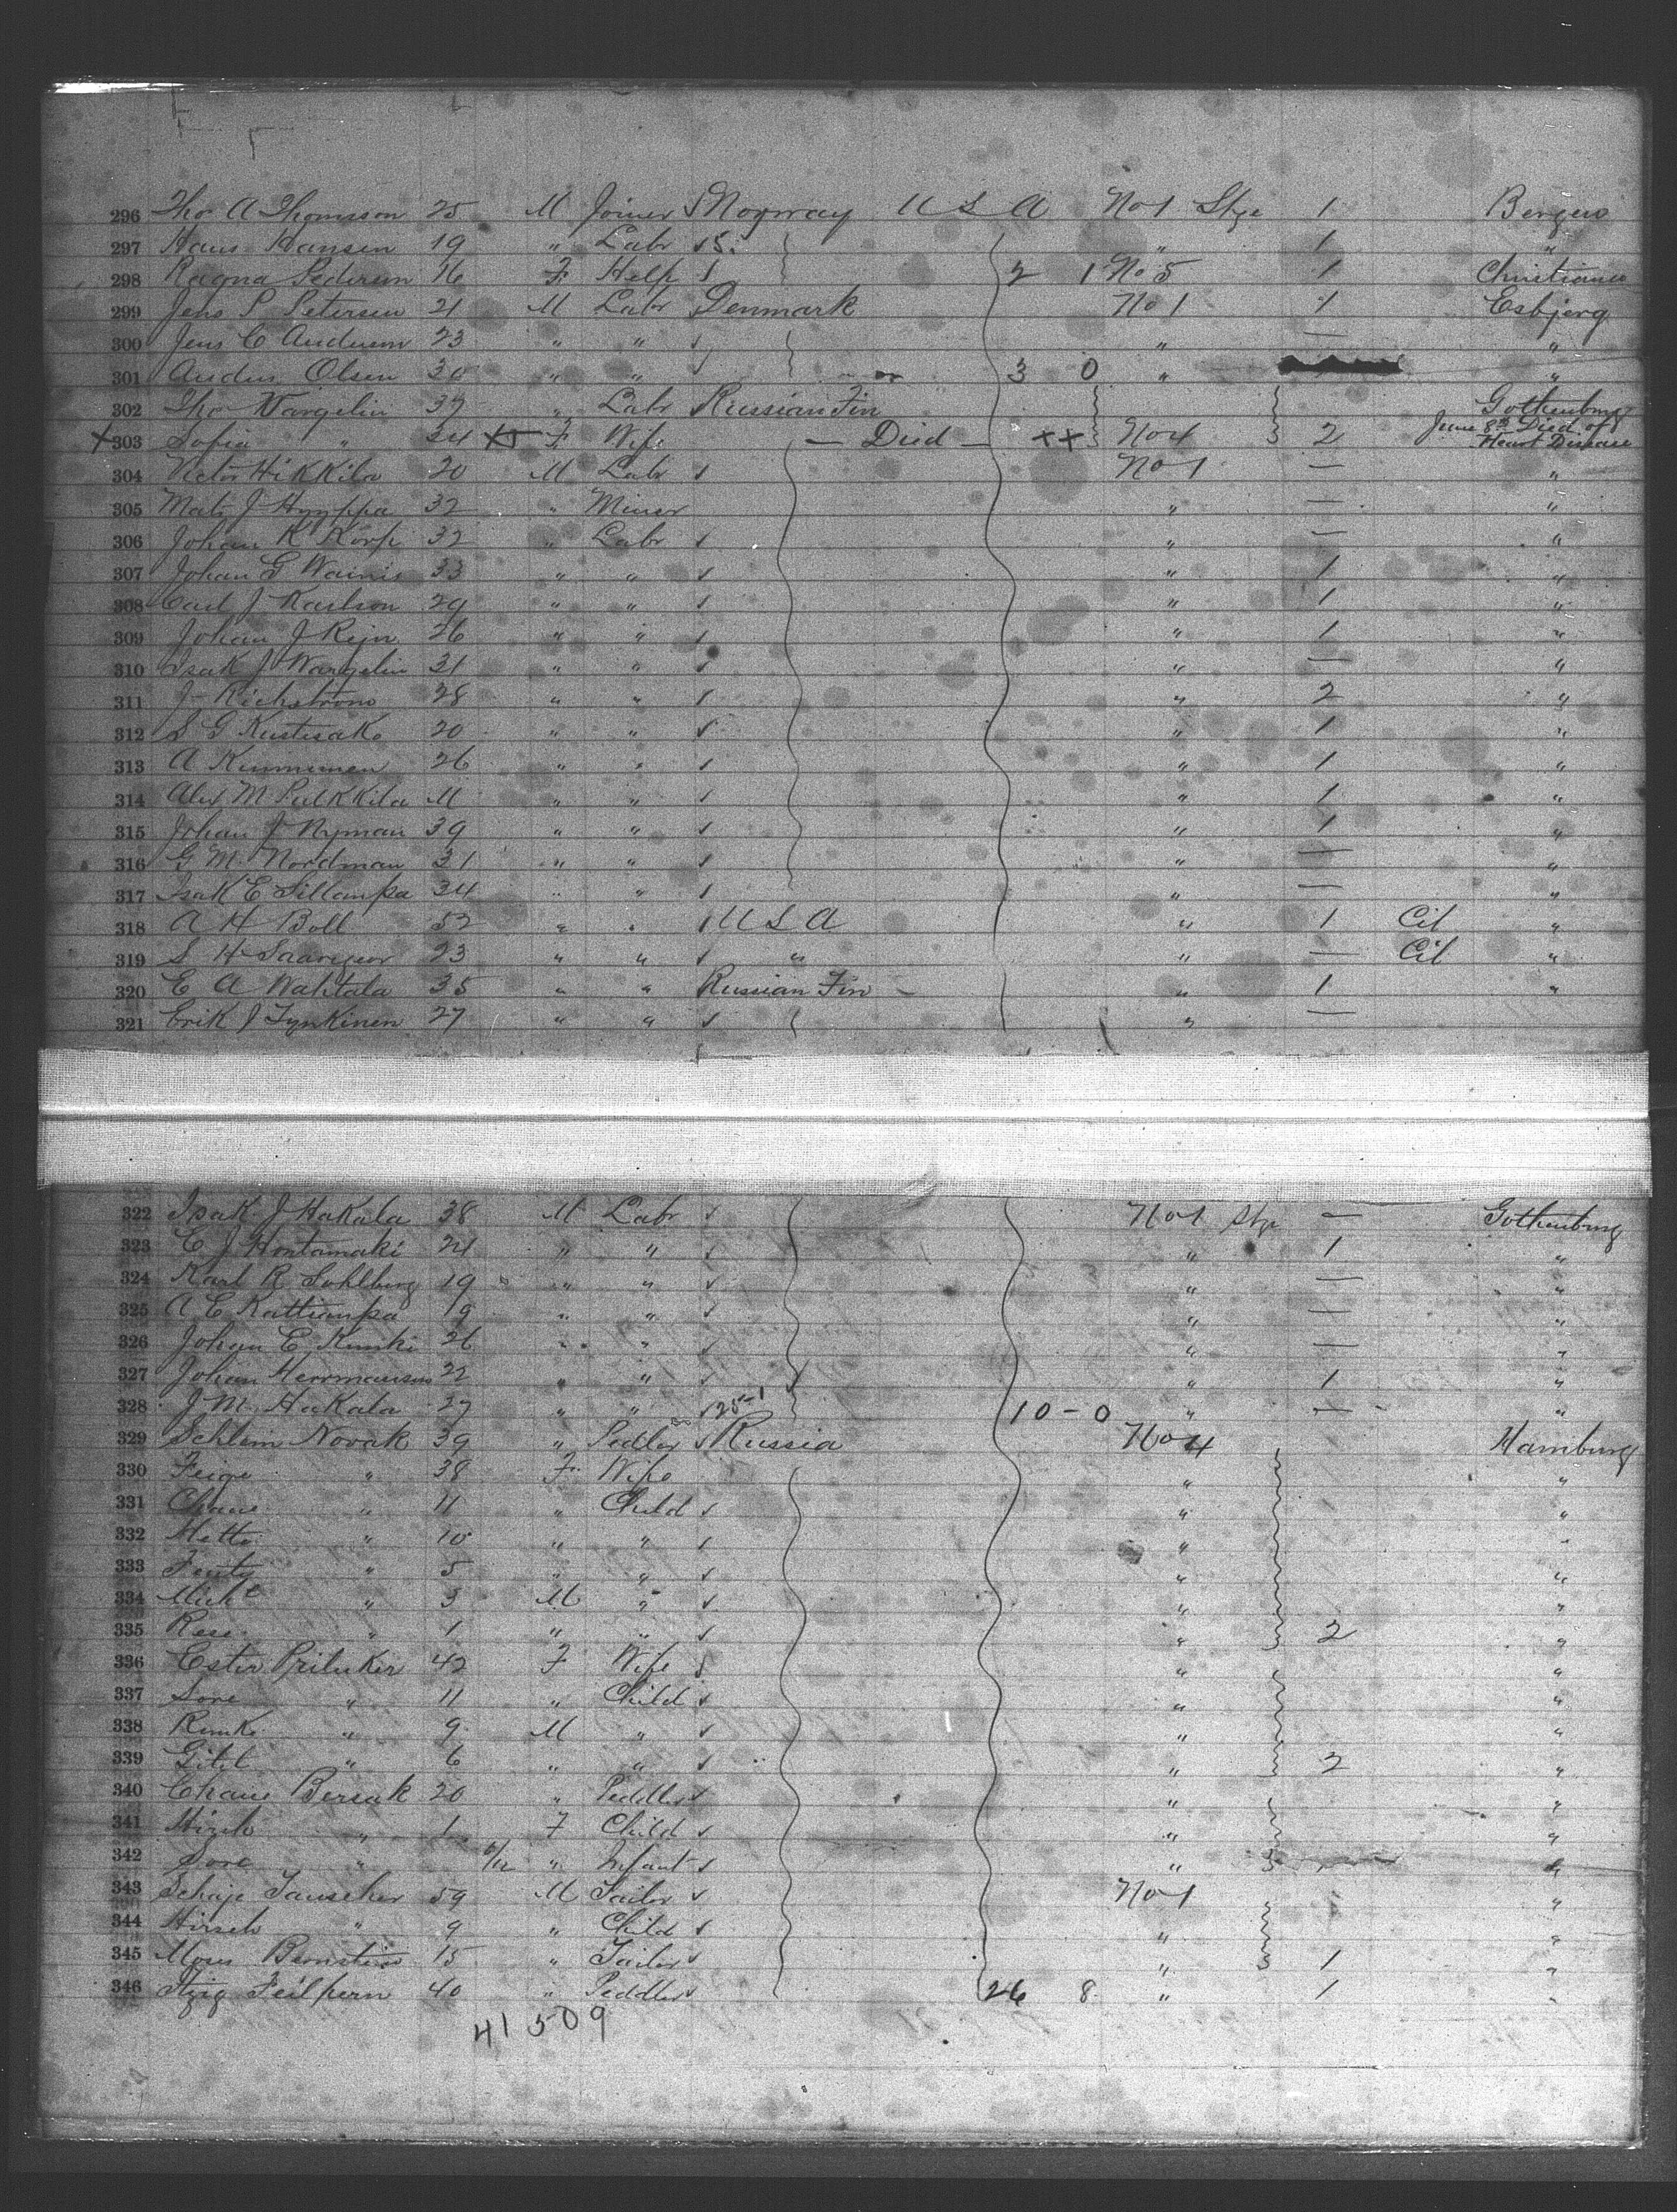 296 Tho A Thomsson 25 M Joiner Norway U S A No 1 Stge 1 Bergen
297 Hans Hansen 19 " Labr " 1 "
298 Ragna Pedersen 16 F Help 2 1 No 5 1 Christiania
299 Jens P Petersen 21 M Labr Denmark No 1 1 Esbjerg
300 Jens C Andersen 23 " " " — "
301 Olsen 30 " " 3 0 " "
302 Tho Wargelin 37 " Labr Russian Fin Gothenburg
X 303 Sofia " 24 F Wife — Died — XX No 4 2 June 8th Died of Heart Disease
304 Victor Hikkila 20 M Labr No 1 — "
305 Mats J Hyyppa 32 " Miner " — "
306 Johan K Korpi 32 " Labr " — "
307 Johan G Wainio 33 " " " 1 "
308 Carl J Karlson 29 " " " 1 "
309 Johan J Rejn 26 " " " 1 "
310 Isak J Wargelin 31 " " " — "
311 J Richstrom 28 " " " 2 "
312 S G Kustisako 20 " " " 1 "
313 A Kinnunen 26 " " " 1 "
314 Alex M Pulkkila M " " " 1 "
315 Johan J Nyman 39 " " " 1 "
316 G M Nordman 31 " " " — "
317 Isak E Sillanpa 34 " " " — "
318 A H Boll 52 " " U S A " 1 Cit "
319 S H 23 " " " " — Cit "
320 E A Wahtala 35 " " Russian Fin — " 1 "
321 Erik J Tynkinen 27 " " " —
322 Isak J Hakala 38 M Labr No 1 Stge — Gothenburg
323 E J Hontamaki 21 " " " 1 "
324 Karl R Sohlberg 19 " " " — "
325 A E Kattianpa 19 " " " — "
326 Johan E 26 " " " — "
327 Johan Herrmanson 22 " " " 1 "
328 J M Hakala 27 " " 25-1 10-0 " — "
329 Schlem Novak 39 " Pedler Russia No 4 Hamburg
330 Feige " 38 F Wife " "
331 Chane " 11 " Child " "
332 " 10 " " " "
333 " 5 " " " "
334 " 3 M " " "
335 " 1 " " " 2 "
336 Ester Priluker 42 F Wife " "
337 Sore " 11 " Child " "
338 " 9 M " " "
339 Gitel " 6 " " " 2 "
340 Chaie Bersak 20 " Peddler " "
341 Hirsch " 1 F Child " "
342 Sore " " Infant " "
343 Schaje Tauscher 59 M Tailor No 1 "
344 Hirsch " 9 " Child " "
345 Moses Bernstein 15 " Tailor " 1 "
346 Itzig Feilpern 40 " Peddler 26 8 " 1 "
41509